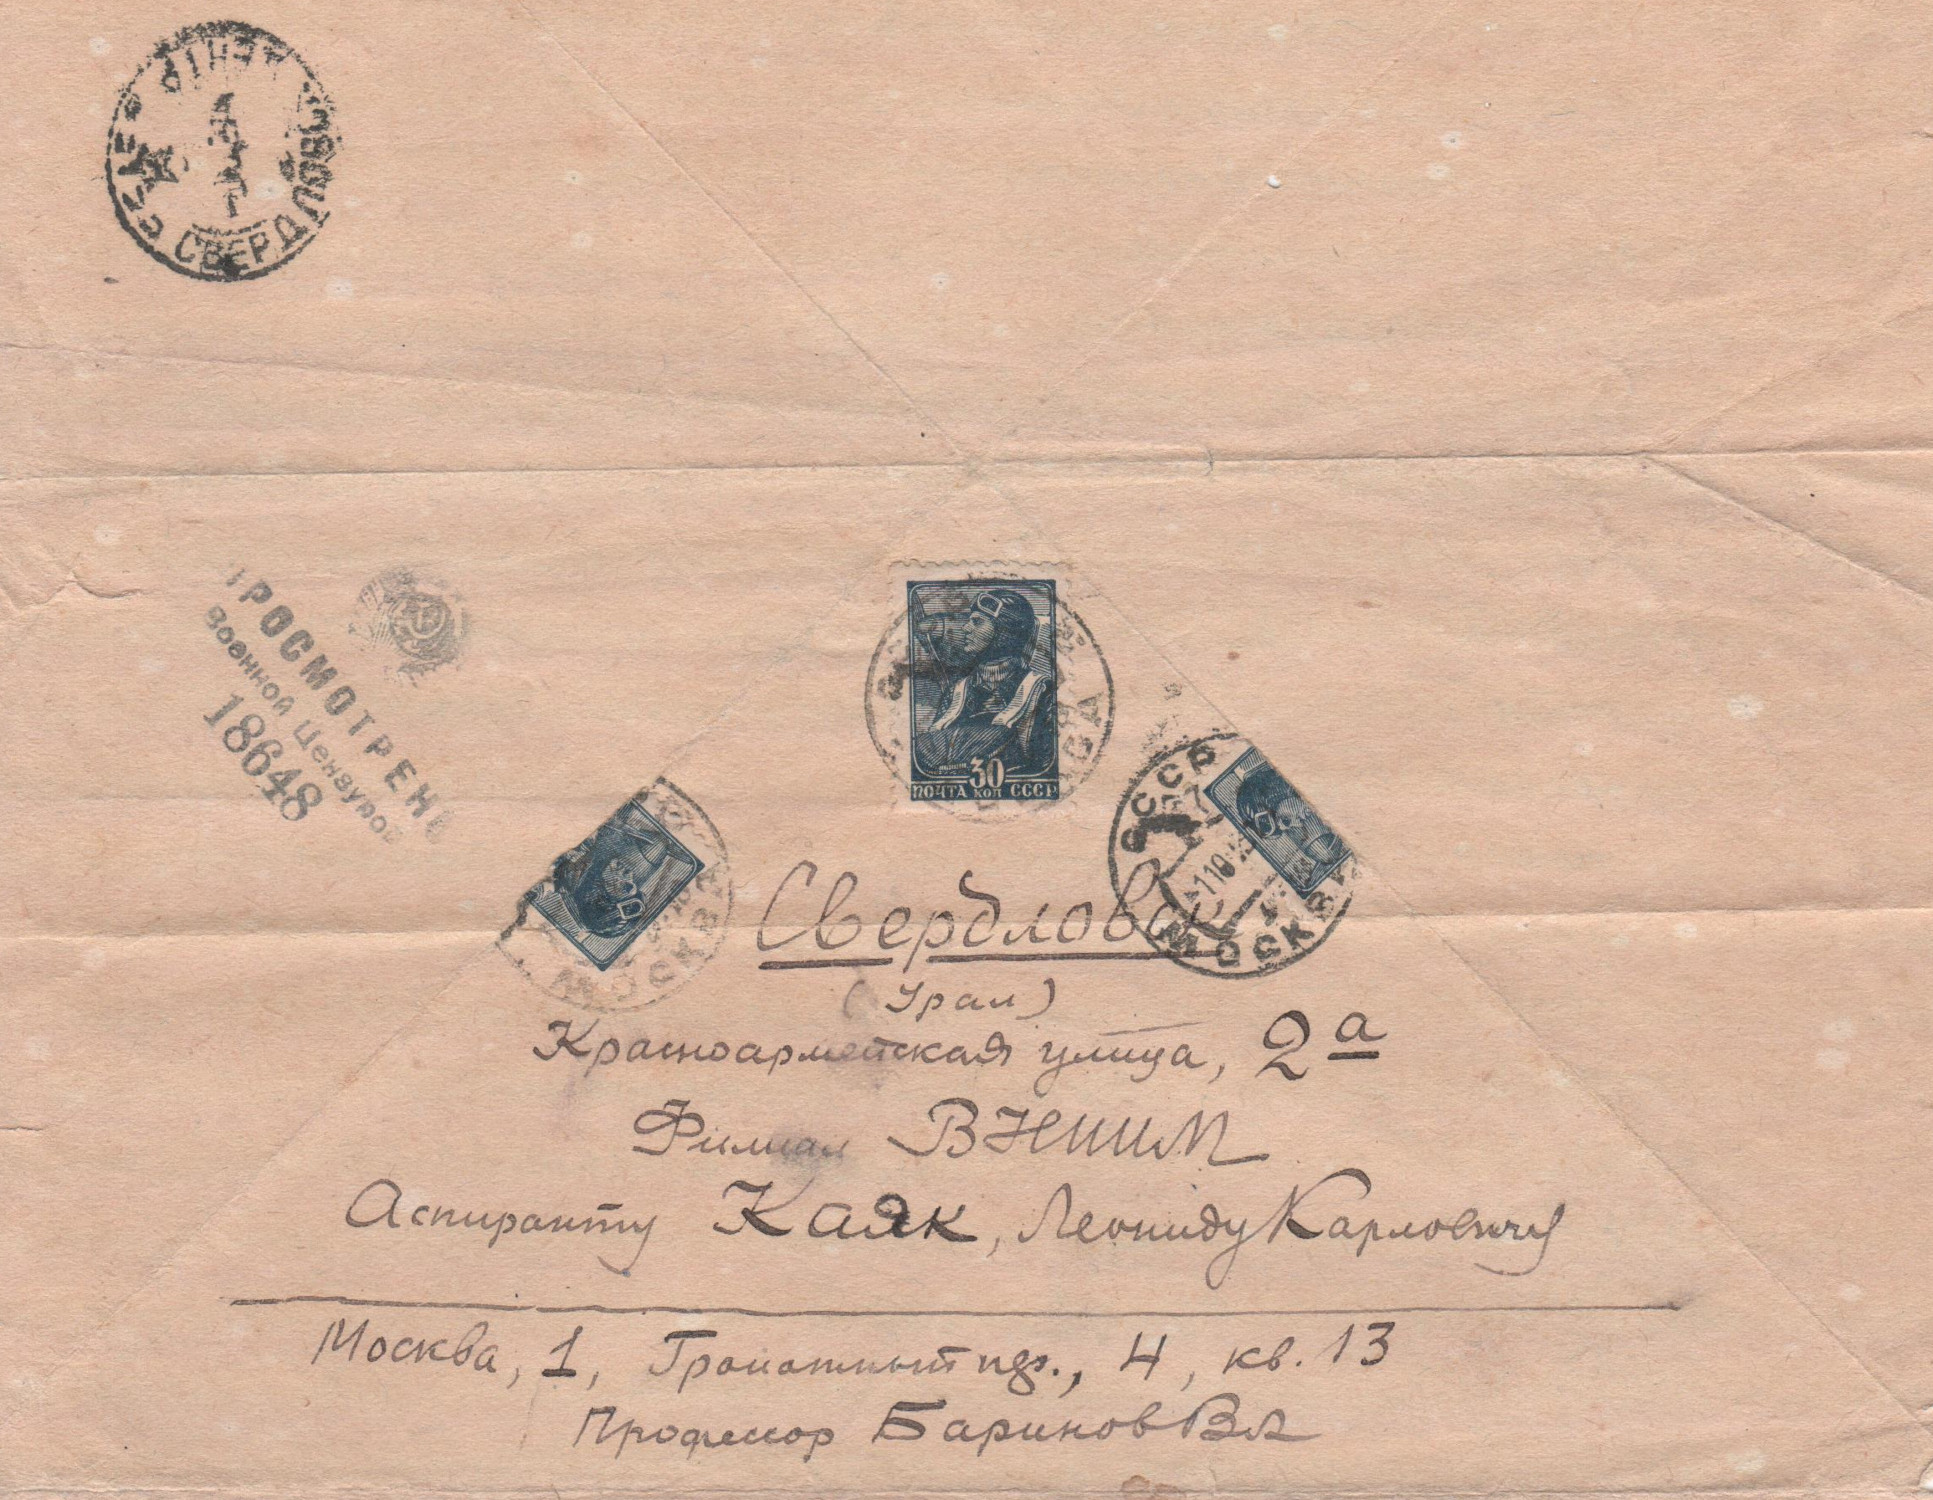 СВЕРДЛОВСК
ПРОСМОТРЕНО
Военной Цензурой
18648
30
ПОЧТА КОП СССР
МОСКВА
СССР
МОСКВА
Свердловск
(Урал)
Красноармейская улица, 2а
Филиал ВНИИМ
Аспиранту Каяк, Леониду Карловичу
Москва, 1, Гранатный пер., 4, кв. 13
Профессор Баринов Вл